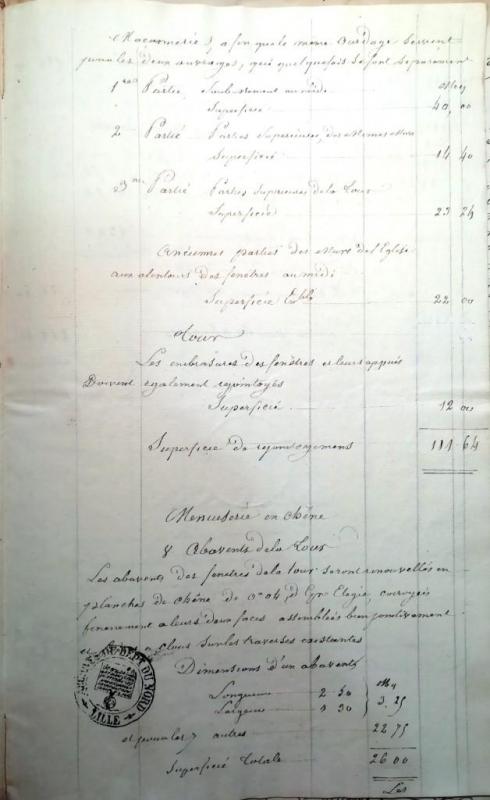 Maçonnerie, afin que le même ourdage servent
pour les deux ouvrages, qui quelquefois se font separement
1ere Partie Soubassement au midi
Superficie 40, 00
2 Partie Parties Superieures, des Memes Murs
Superficie 14 40
3me Partie Parties Superieures de la Tour
Superficie 23 24
Anciennes parties des Murs de l'Eglise
aux alentours des fenêtres au midi
Superficie 22 00
Tour
Les embrasures des fenêtres et leurs appuis
Doivent egalement rejointoyés
Superficie 12 00
Superficie de rejointoyemens 111 64
Menuiserie en chêne
8 Abavents de la Tour
Les abavents des fenetres de la tour seront renouvellés en
planches de chêne de 0m04, d'Epr corroyés
finement a leurs deux faces assemblées bien jointivement
clous sur les traverses existantes
Dimensions d'un abavents
Longueur 2 50
Largeur 1 30 } 3. 25
et pour les 7 autres 22 75
Superficie Totale 26 00
Les
ARCHIVES DU DEPT DU NORD
LILLE